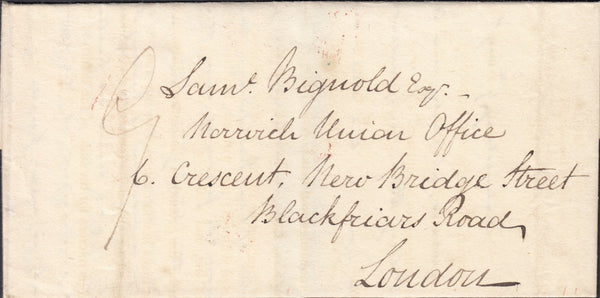 Saml. Bignold Esqr.
Norwich Union Office
6. Crescent, New Bridge Street
Blackfriars Road,
London